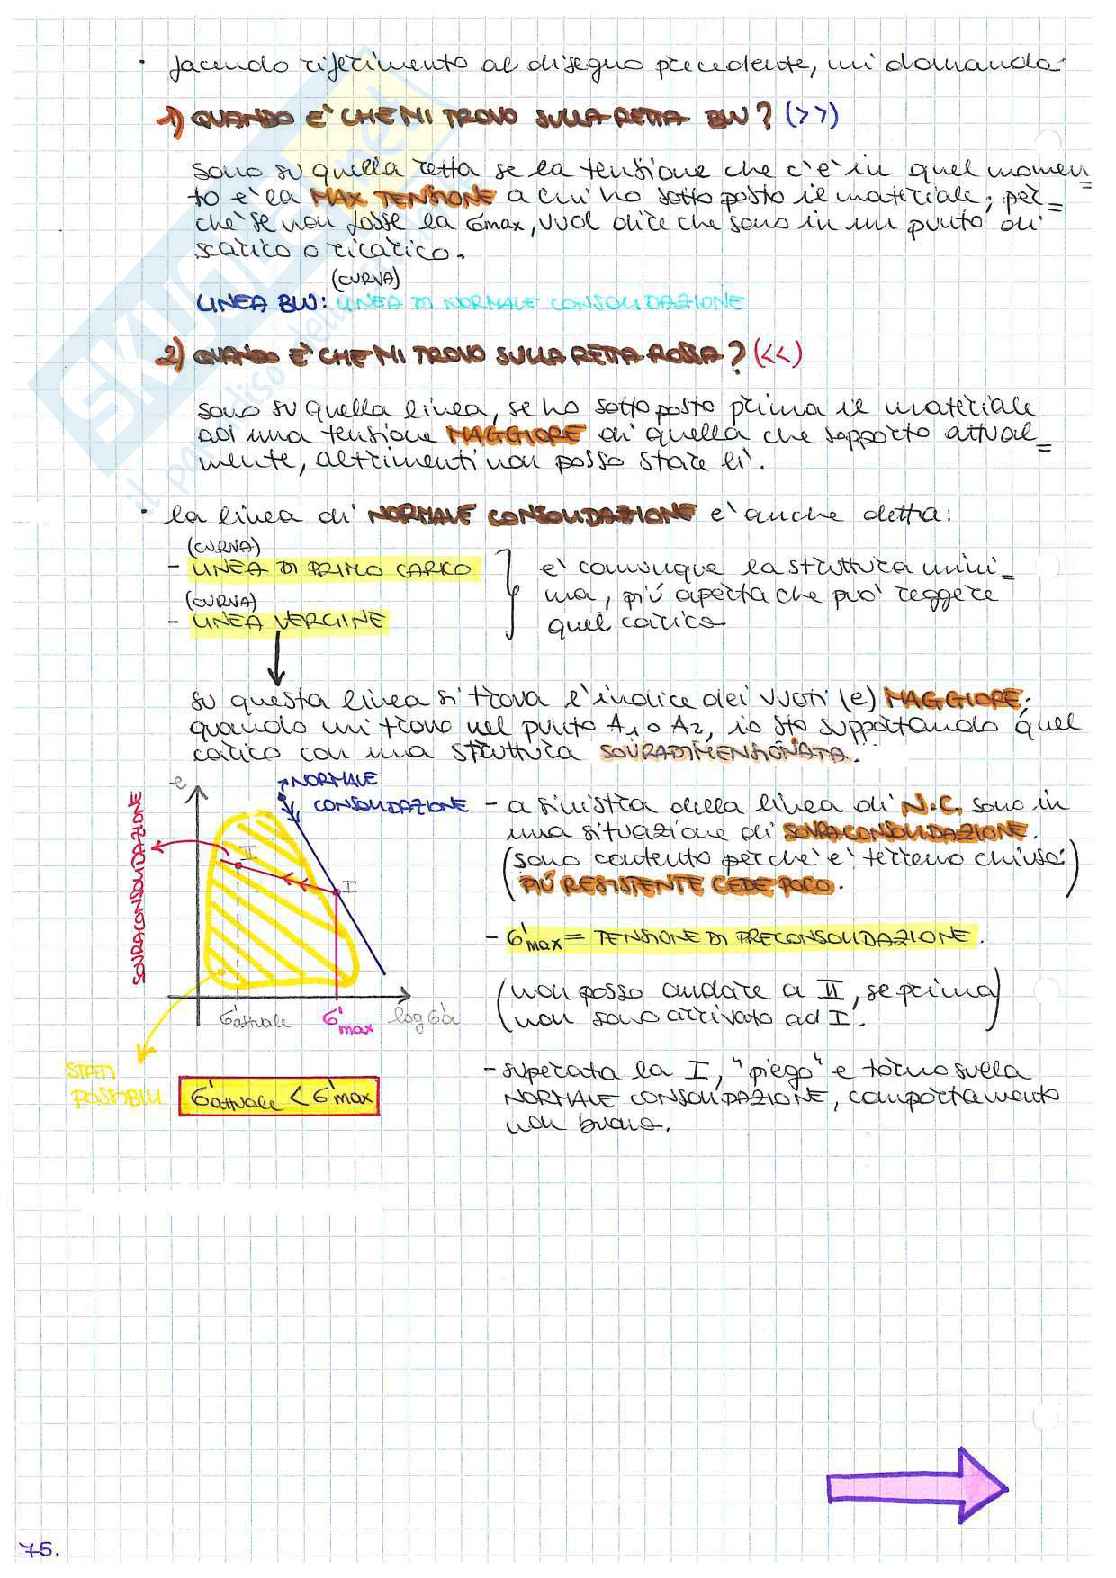 • facendo riferimento al disegno precedente, mi domando:
1) QUANDO E' CHE MI TROVO SULLA RETTA BLU? (>>)
sono su quella retta se la tensione che c'è in quel momen=
to è la MAX TENSIONE a cui ho sottoposto il materiale; per=
chè se non fosse la σmax, vuol dire che sono in un punto di
scarico o ricarico.
(CURVA)
LINEA BLU: LINEA DI NORMALE CONSOLIDAZIONE
2) QUANDO E' CHE MI TROVO SULLA RETTA ROSSA? (<<)
sono su quella linea, se ho sottoposto prima il materiale
ad una tensione MAGGIORE di quella che sopporto attual=
mente, altrimenti non posso stare lì.
• la linea di NORMALE CONSOLIDAZIONE è anche detta:
(CURVA)
- LINEA DI PRIMO CARICO
(CURVA)
- LINEA VERGINE
è comunque la struttura mini=
ma, più aperta che può reggere
quel carico
su questa linea si trova l'indice dei vuoti (e) MAGGIORE;
quando mi trovo nel punto A1 o A2, io sto supportando quel
carico con una struttura SOVRADIMENSIONATA.
e
NORMALE
CONSOLIDAZIONE
SOVRACONSOLIDAZIONE
II
I
σ'attuale
σ'max
log σ'a
STATI
POSSIBILI
σ'attuale < σ'max
- a sinistra della linea di N.C. sono in
una situazione di SOVRACONSOLIDAZIONE.
(sono contento perchè è terreno chiuso:
PIÚ RESISTENTE CEDE POCO.)
- σ'max = TENSIONE DI PRECONSOLIDAZIONE.
(non posso andare a II, se prima
non sono arrivato ad I.)
- superata la I, "piego" e torno sulla
NORMALE CONSOLIDAZIONE, comportamento
non buono.
75.
SKUOLA.net
il paradiso dello